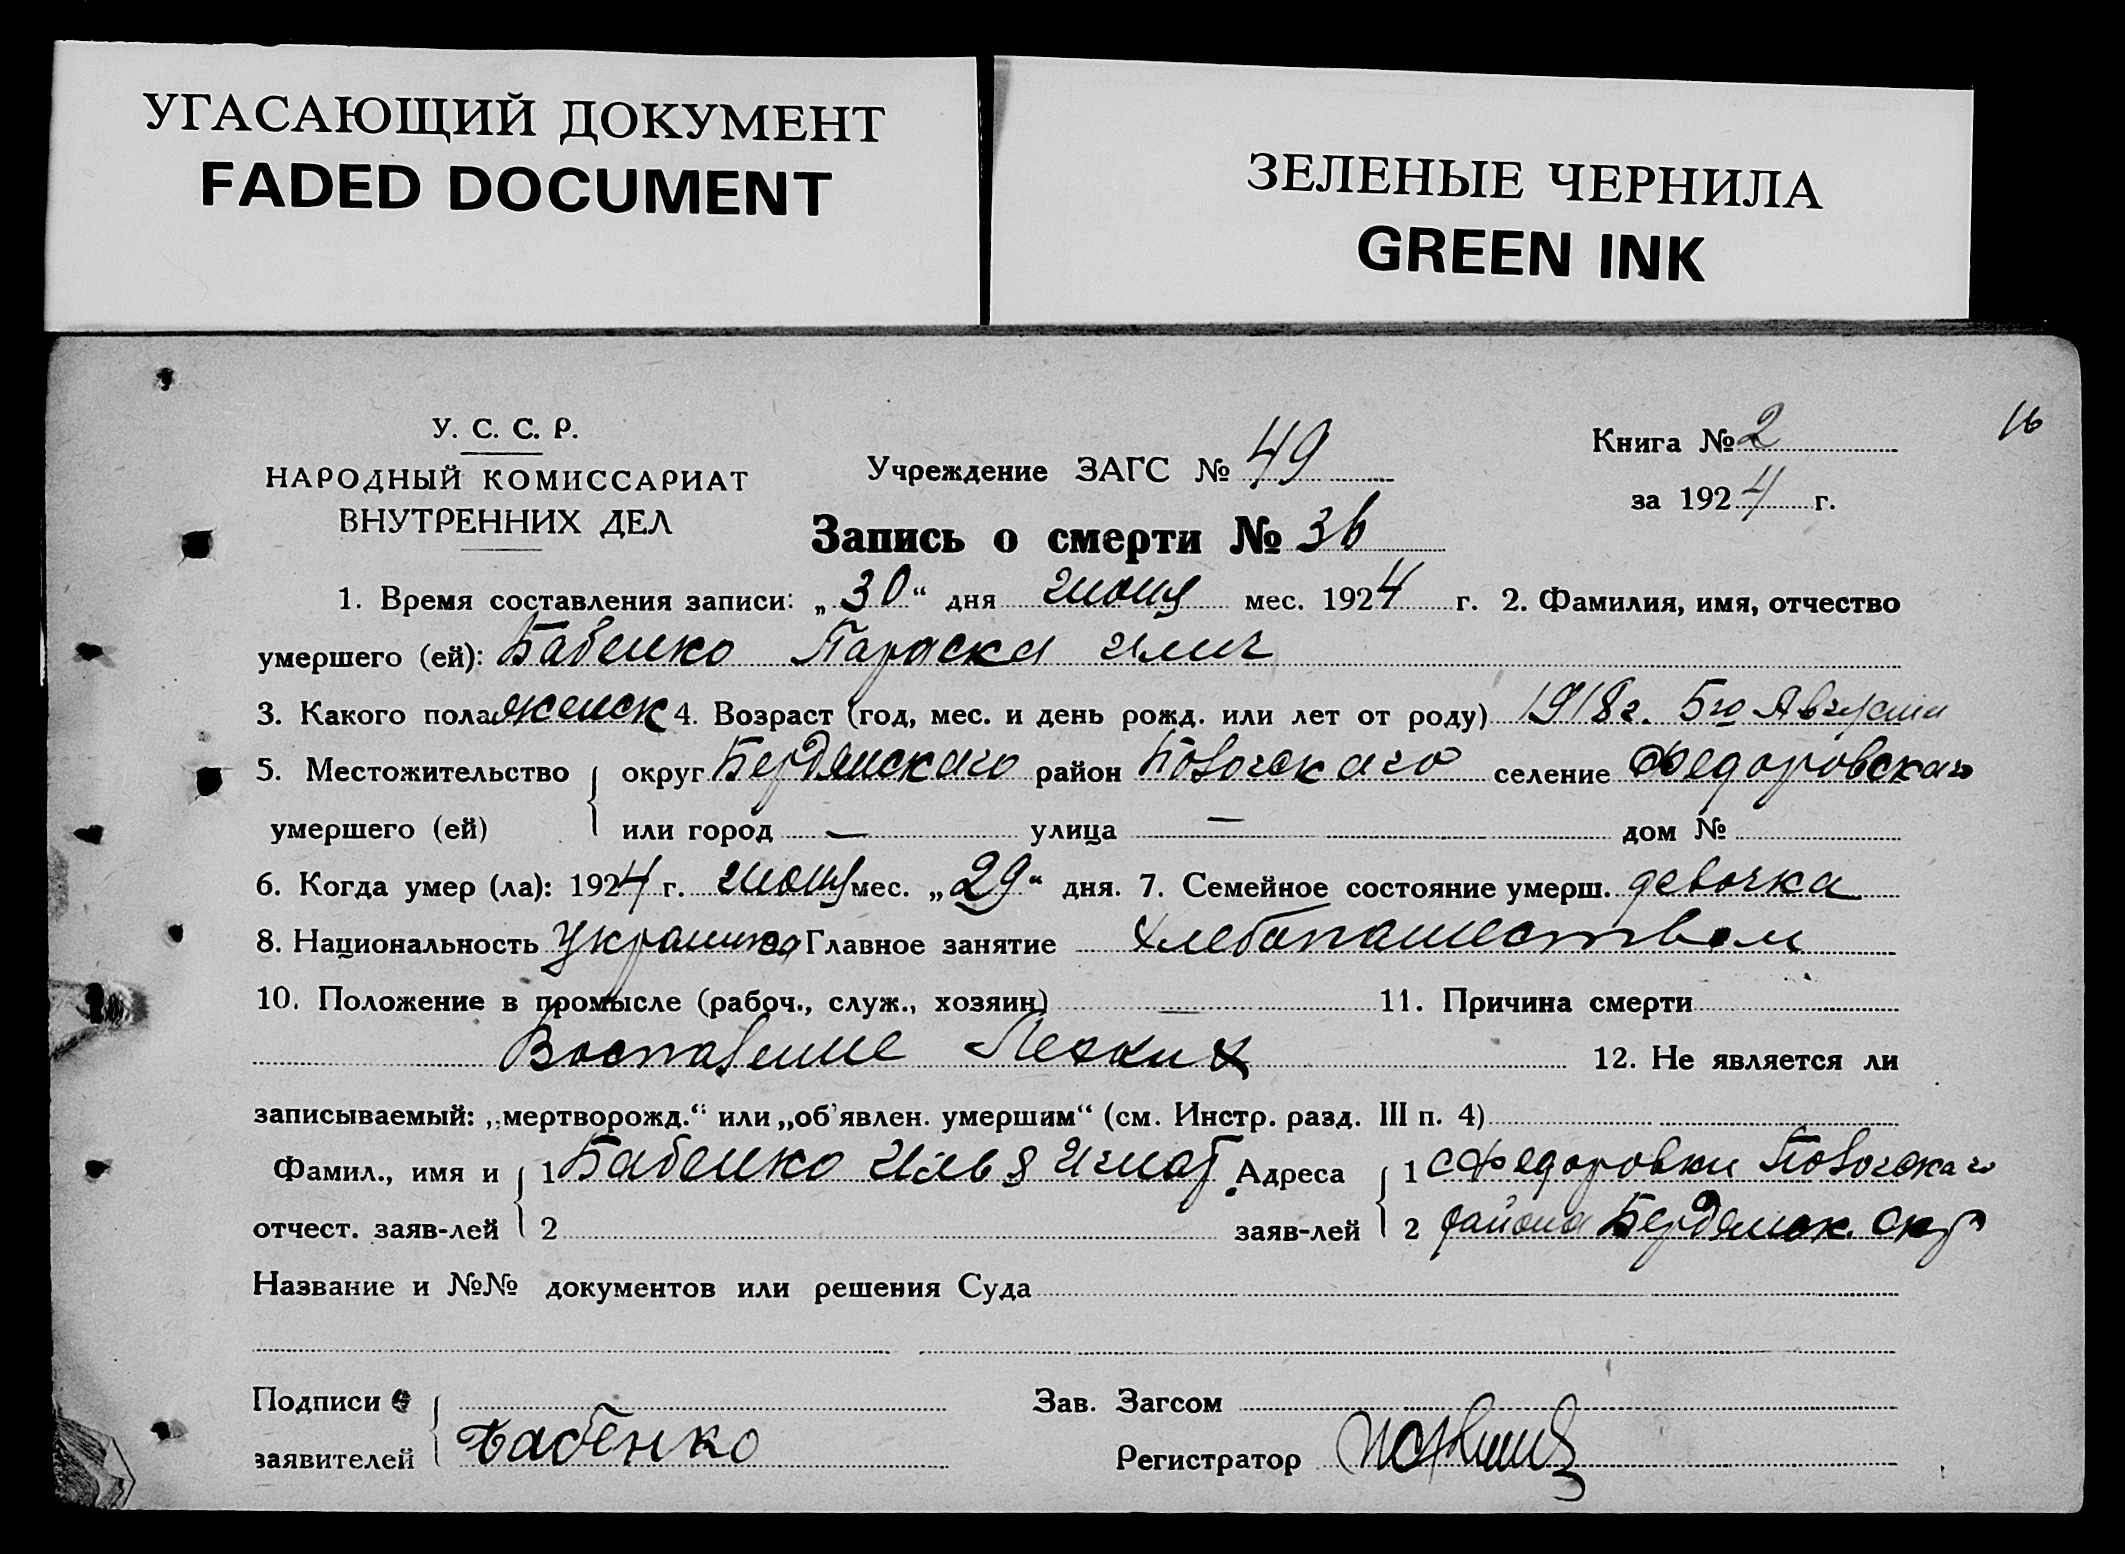 УГАСАЮЩИЙ ДОКУМЕНТ
FADED DOCUMENT
ЗЕЛЕНЫЕ ЧЕРНИЛА
GREEN INK
16
У. С. С. Р.
НАРОДНЫЙ КОМИССАРИАТ
ВНУТРЕННИХ ДЕЛ
Учреждение ЗАГС № 49
Книга № 2
за 1924 г.
Запись о смерти № 36
1. Время составления записи: „30“ дня июня мес. 1924 г. 2. Фамилия, имя, отчество
умершего (ей): Бабенко Параска Илич
3. Какого пола женск 4. Возраст (год, мес. и день рожд. или лет от роду) 1918г. 5го Августа
5. Местожительство округ Бердянского район селение Федоровского
умершего (ей) или город — улица — дом №
6. Когда умер (ла): 1924 г. июня мес. „29“ дня. 7. Семейное состояние умерш. девочка
8. Национальность украинка Главное занятие хлебопашеством
10. Положение в промысле (рабоч., служ., хозяин) — 11. Причина смерти
Воспаление Легких 12. Не является ли
записываемый: „мертворожд.“ или „об'явлен. умершим“ (см. Инстр. разд. III п. 4)
Фамил., имя и 1 Бабенко Илья Игнат Адреса 1 с Федоровки
отчест. заяв-лей 2 заяв-лей 2 района Бердянск. окр
Название и №№ документов или решения Суда
Подписи Зав. Загсом
заявителей Бабенко Регистратор